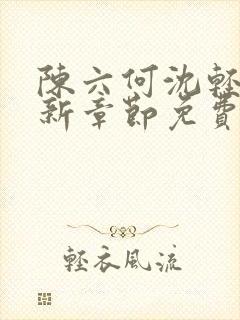 陳六何沈輕
新章節免費
輕衣風流